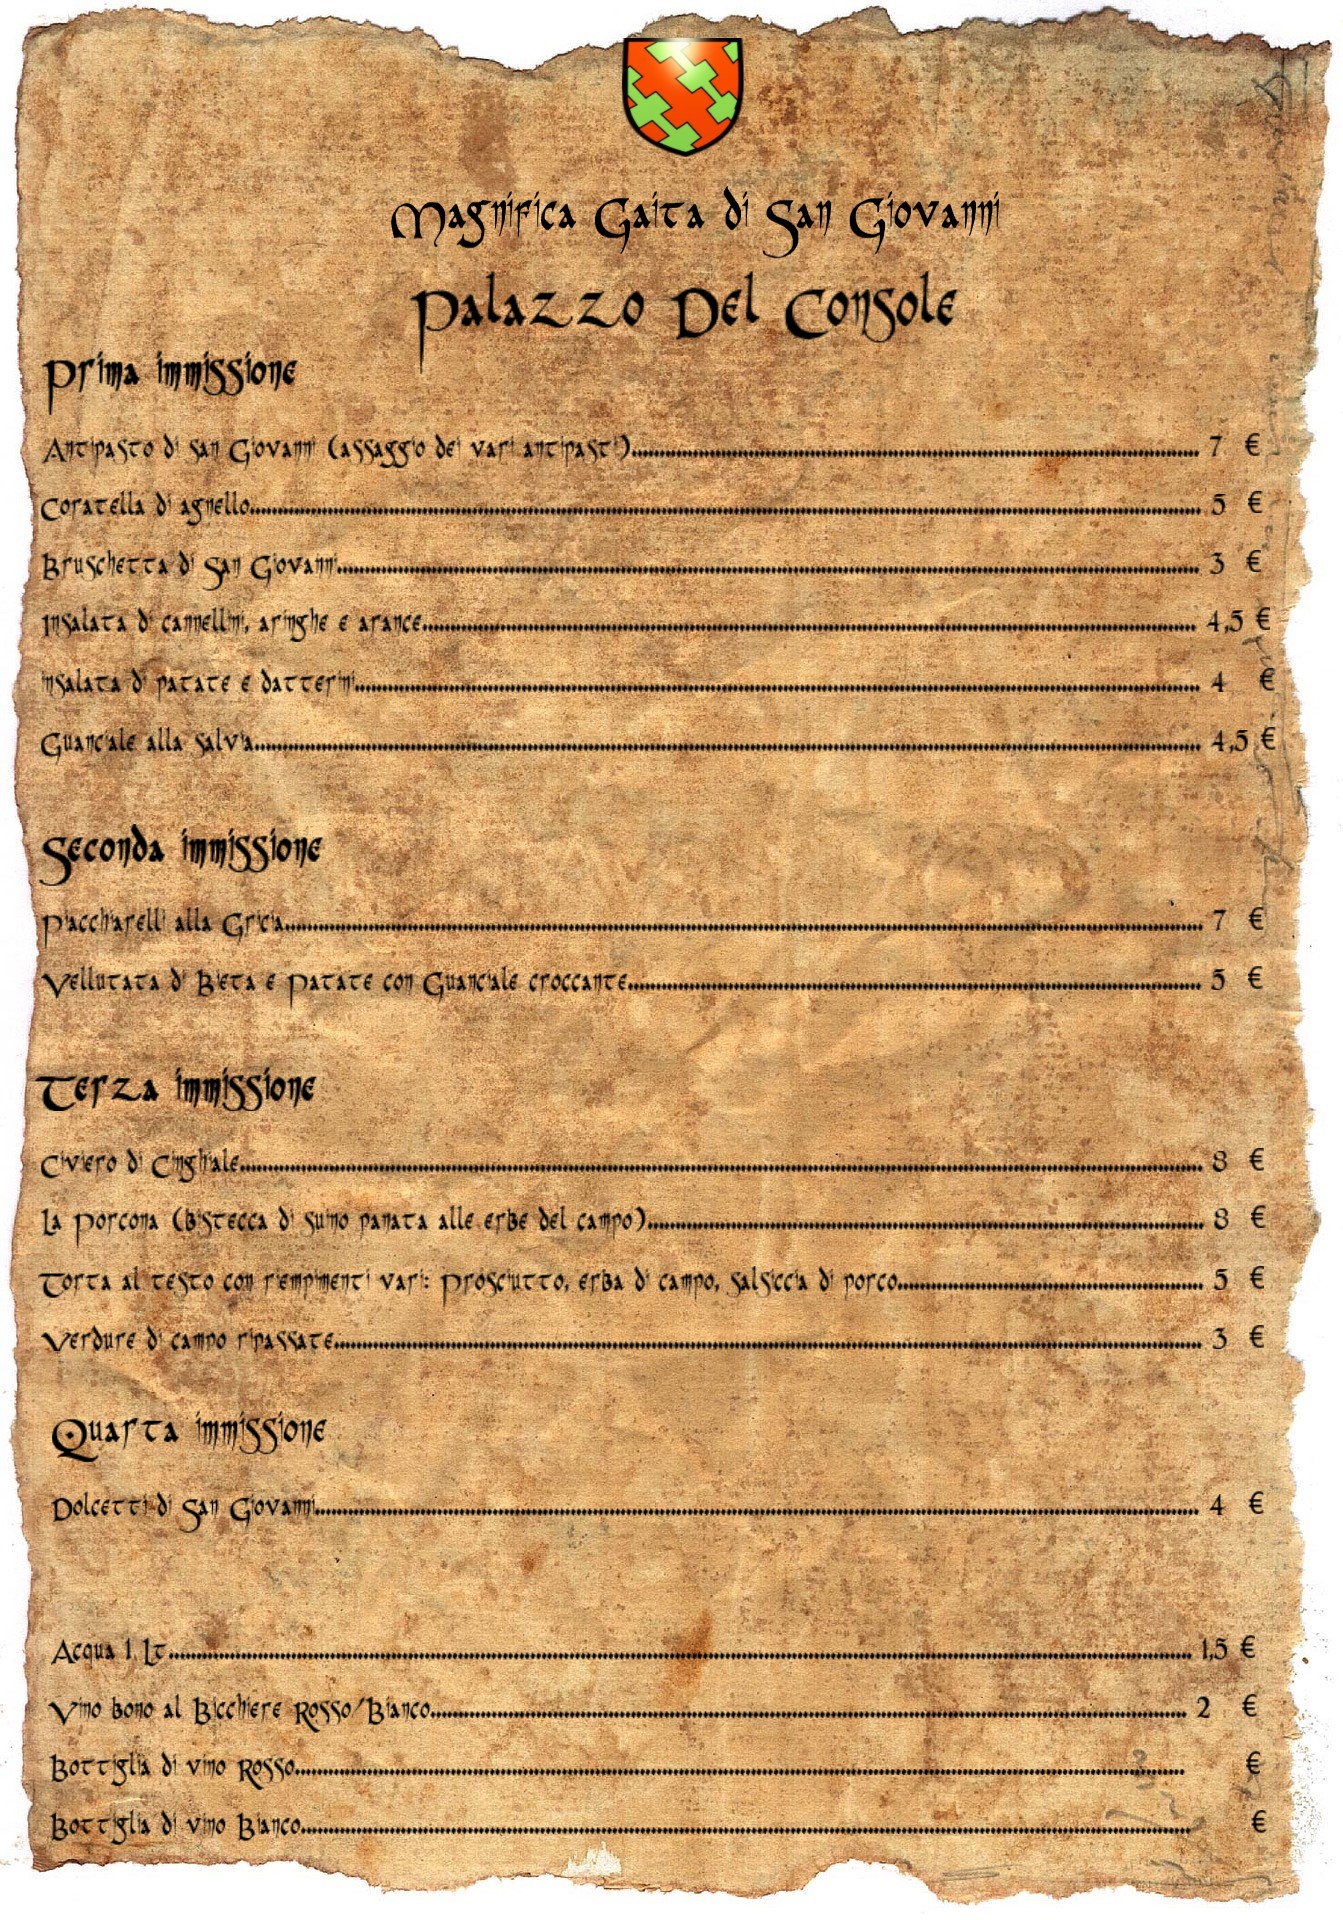 Magnifica Gaita di San Giovanni
Palazzo Del Console
Prima immissione
Antipasto di san Giovanni (assaggio dei vari antipasti)........ 7 €
Coratella di agnello........ 5 €
Bruschetta di San Giovanni........ 3 €
Insalata di cannellini, aringhe e arance........ 4,5 €
insalata di patate e datterini........ 4 €
Guanciale alla salvia........ 4,5 €
Seconda immissione
Piacchiarelli alla Gricia........ 7 €
Vellutata di Bieta e Patate con Guanciale croccante........ 5 €
Terza immissione
Civiero di Cinghiale........ 8 €
La Porcona (Bistecca di suino panata alle erbe del campo)........ 8 €
Torta al testo con riempimenti vari: Prosciutto, erba di campo, salsiccia di porco........ 5 €
Verdure di campo ripassate........ 3 €
Quarta immissione
Dolcetti di San Giovanni........ 4 €
Acqua 1 Lt........ 1,5 €
Vino bono al Bicchiere Rosso/Bianco........ 2 €
Bottiglia di vino Rosso........ €
Bottiglia di vino Bianco........ €